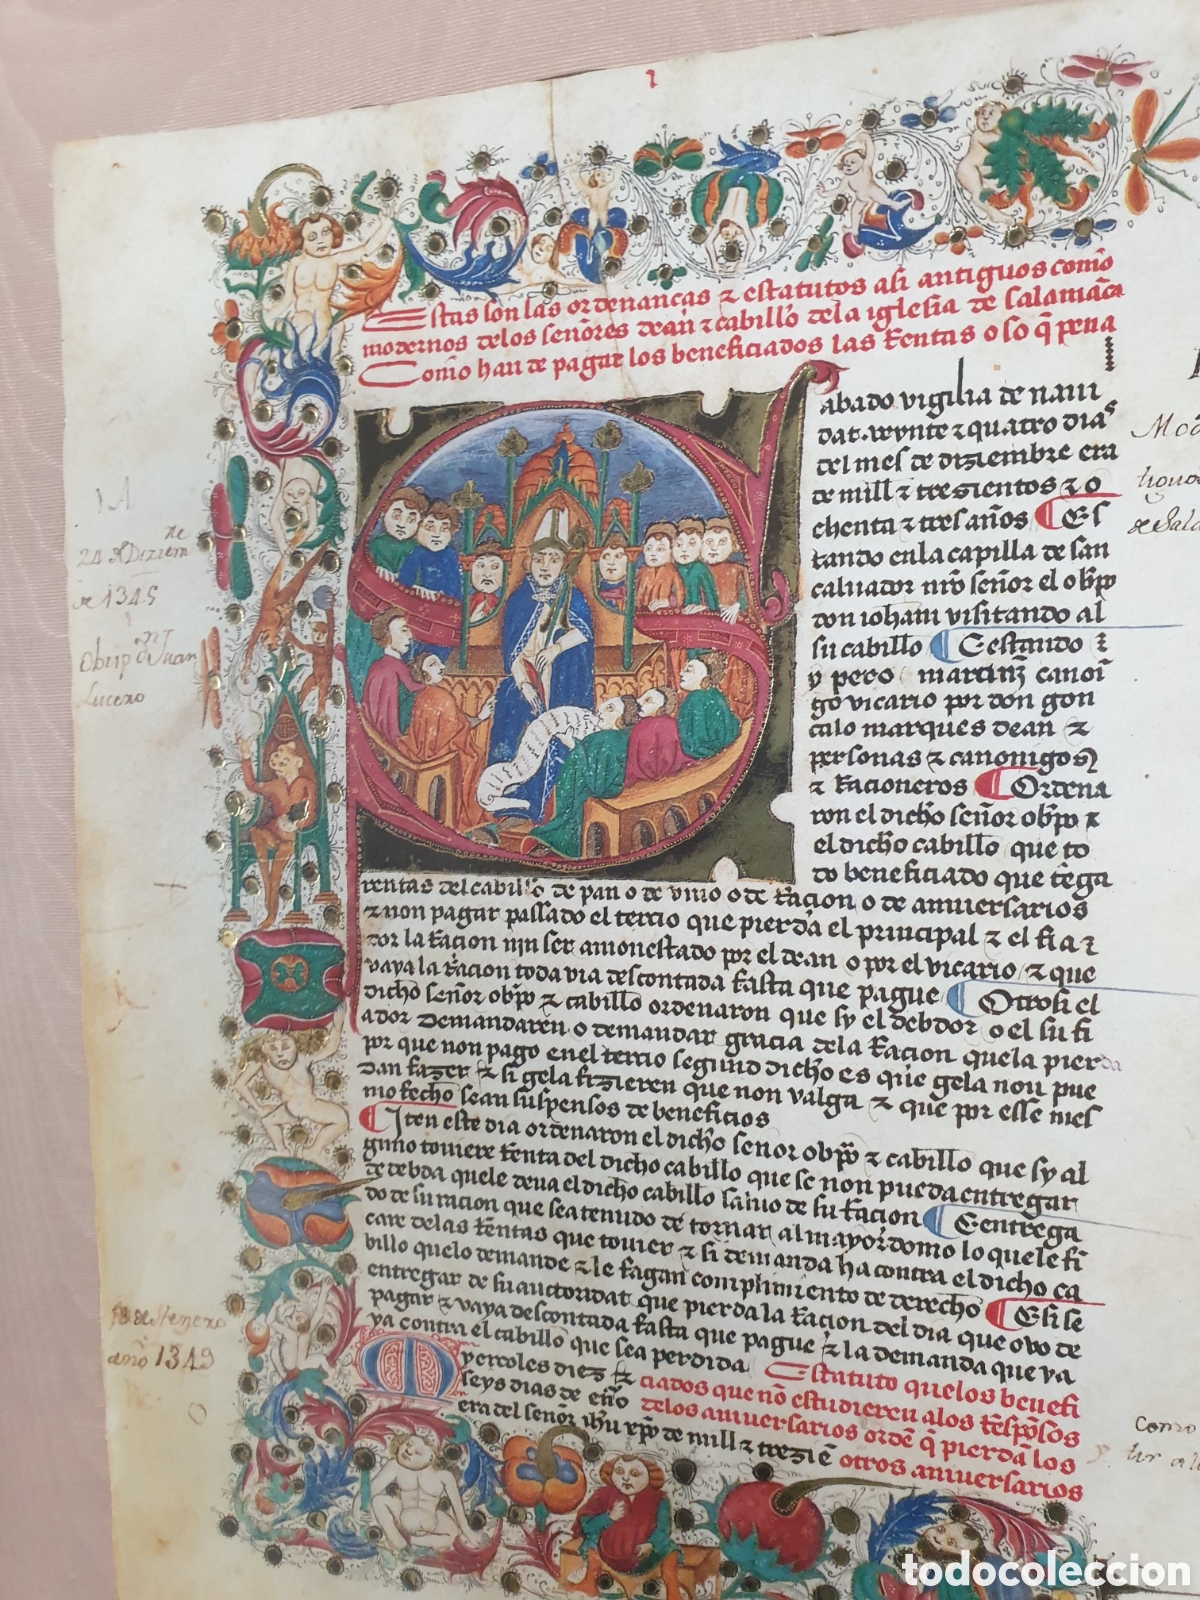 1
Estas son las ordenancas & estatutos asi antiguos como
modernos delos señores dean & cabillo dela iglesia de salamāca
Como han de pagar los beneficiados las Rentas o so q̄ pena
abado vigilia de naui
dat. veynte & quatro dias
del mes de diziembre era
de mill & tresientos & o
chenta & tres años Es
tando en la capilla de san
caluador nr̄o señor el obp̄o
don ioham visitando al
su cabillo E estando &
y pero martinz canoī
go vicario por don gon
calo marques dean &
personas & canonigos
& Racioneros Ordena
ron el dicho señor obp̄o &
el dicho cabillo que to
do beneficiado que tēga
rentas del cabillo de pan o de vino o de Racion o de aniuersarios
& non pagar passado el tercio que pierda el principal & el fia
dor la Racion nin ser amonestado por el dean o por el vicario & que
vaya la Racion toda via descontada fasta que pague Otrosi el
dicho señor obp̄o & cabillo ordenaron que sy el debdor o el su fi
ador demandaren o demandar gracia dela Racion quela pierda
por que non pago en el tercio segund dicho es que gela non pue
dan fazer & si gela fizieren que non valga & que por esse mes
mo fecho sean suspensos de beneficios
Iten este dia ordenaron el dicho señor obp̄o & cabillo que sy al
guno touiere Renta del dicho cabillo que se non pueda entregar
de debda quele deua el dicho cabillo saluo de su Racion E entrega
do de su racion que sea tenudo de tornar al mayordomo lo quele fi
care delas Rentas que touier & si demanda ha contra el dicho ca
billo quelo demande & le fagan complimiento de derecho E si se
entregar de su auctoridat que pierda la Racion del dia que ouo de
pagar & vaya descontada fasta que pague & la demanda que va
ya contra el cabillo que sea perdida Estatuto quelos benefi
Myercoles diez & ciados que nō estudieren alos Respōsos
seys dias de eno delos aniuersarios ordē q̄ pierdā los
era del señor ihū xp̄o de mill & trezie otros aniuersarios
24 de Diziem
de 1345
Obispo Juan
Lucero
de Henero
año 1349
de Sala
Como
todocoleccion